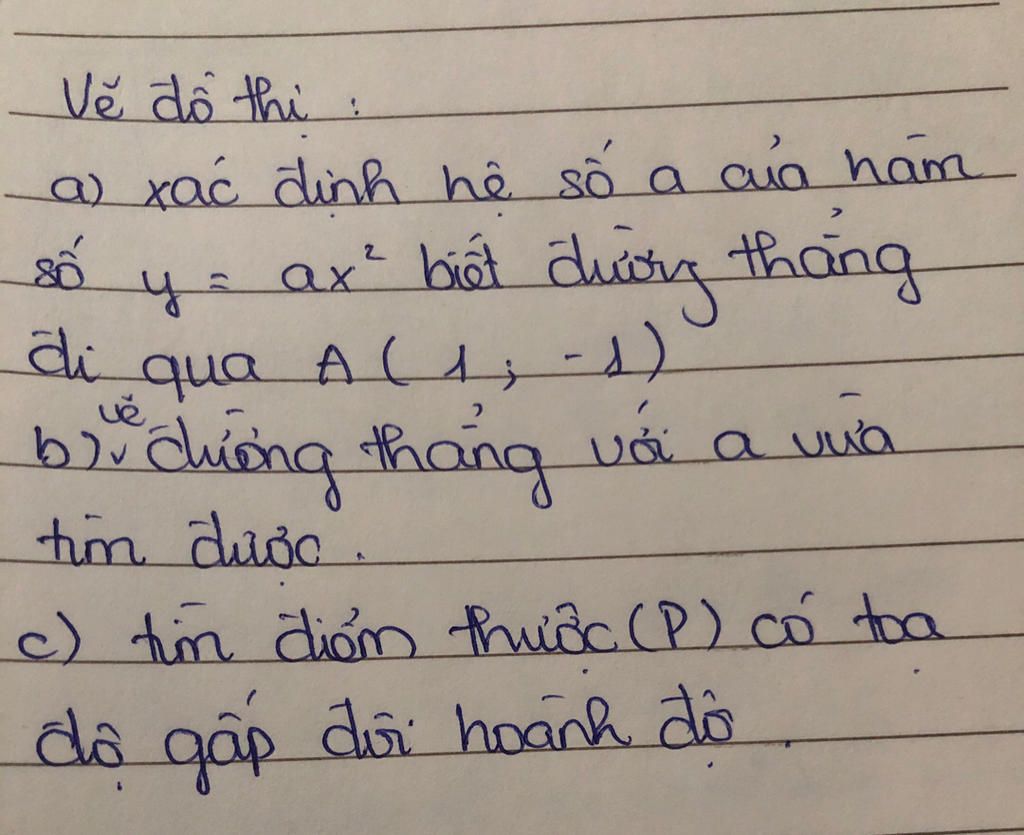 Vẽ đồ thị :
a) xác định hệ số a của hàm
số y = ax² biết đường thẳng
đi qua A ( 1 ; -1 )
b) vẽ đường thẳng với a vừa
tìm được .
c) tìm điểm thuộc (P) có toạ
độ gấp đôi hoành độ .